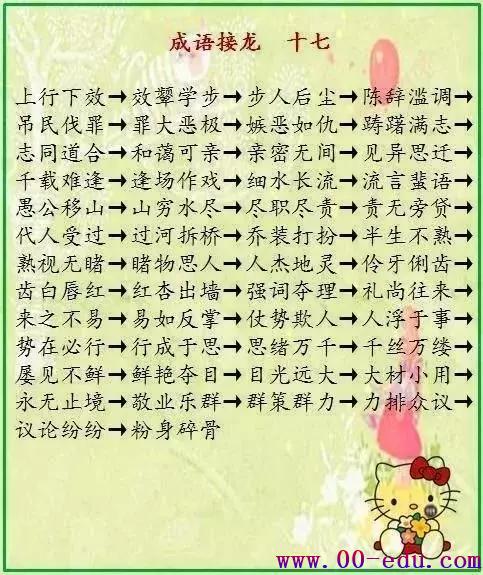 成语接龙 十七
上行下效→效颦学步→步人后尘→陈辞滥调→
吊民伐罪→罪大恶极→嫉恶如仇→踌躇满志→
志同道合→和蔼可亲→亲密无间→见异思迁→
千载难逢→逢场作戏→细水长流→流言蜚语→
愚公移山→山穷水尽→尽职尽责→责无旁贷→
代人受过→过河拆桥→乔装打扮→半生不熟→
熟视无睹→睹物思人→人杰地灵→伶牙俐齿→
齿白唇红→红杏出墙→强词夺理→礼尚往来→
来之不易→易如反掌→仗势欺人→人浮于事→
势在必行→行成于思→思绪万千→千丝万缕→
屡见不鲜→鲜艳夺目→目光远大→大材小用→
永无止境→敬业乐群→群策群力→力排众议→
议论纷纷→粉身碎骨
www.00-edu.com